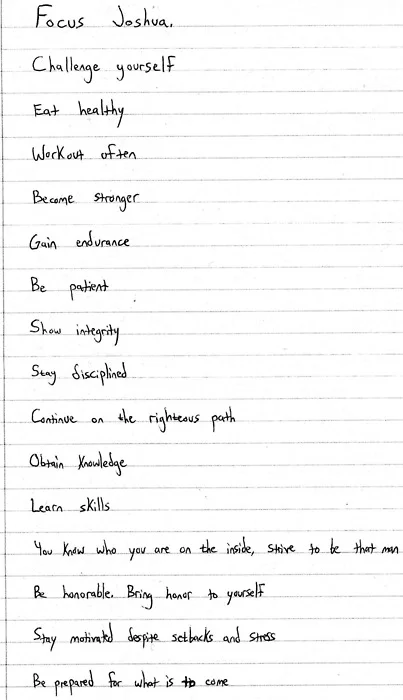 Focus Joshua.
Challenge yourself
Eat healthy
Workout often
Become stronger
Gain endurance
Be patient
Show integrity
Stay disciplined
Continue on the righteous path
Obtain Knowledge
Learn skills
You Know who you are on the inside, strive to be that man
Be honorable. Bring honor to yourself
Stay motivated despite setbacks and stress
Be prepared for what is to come